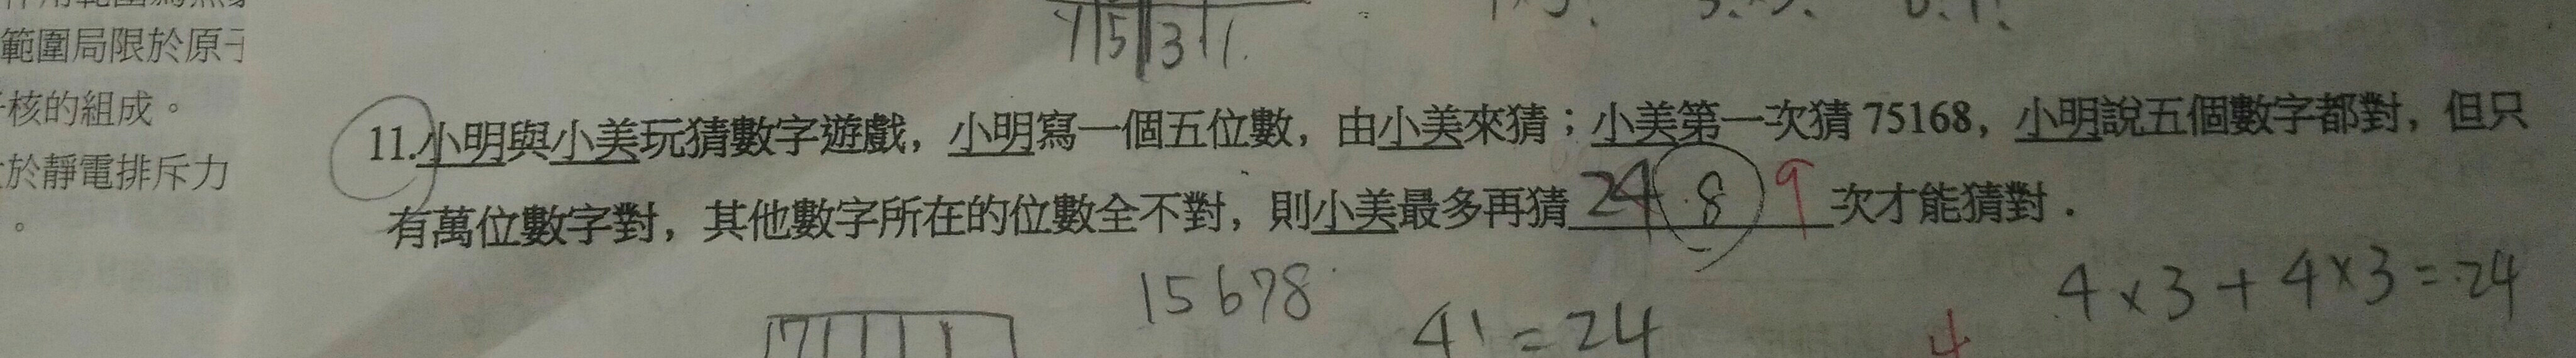 範圍局限於原子
7 5 3 1
核的組成。
11.小明與小美玩猜數字遊戲，小明寫一個五位數，由小美來猜；小美第一次猜 75168，小明說五個數字都對，但只
於靜電排斥力
有萬位數字對，其他數字所在的位數全不對，則小美最多再猜 24 8 9 次才能猜對．
。
15678
4×3+4×3=24
7
4! = 24
4